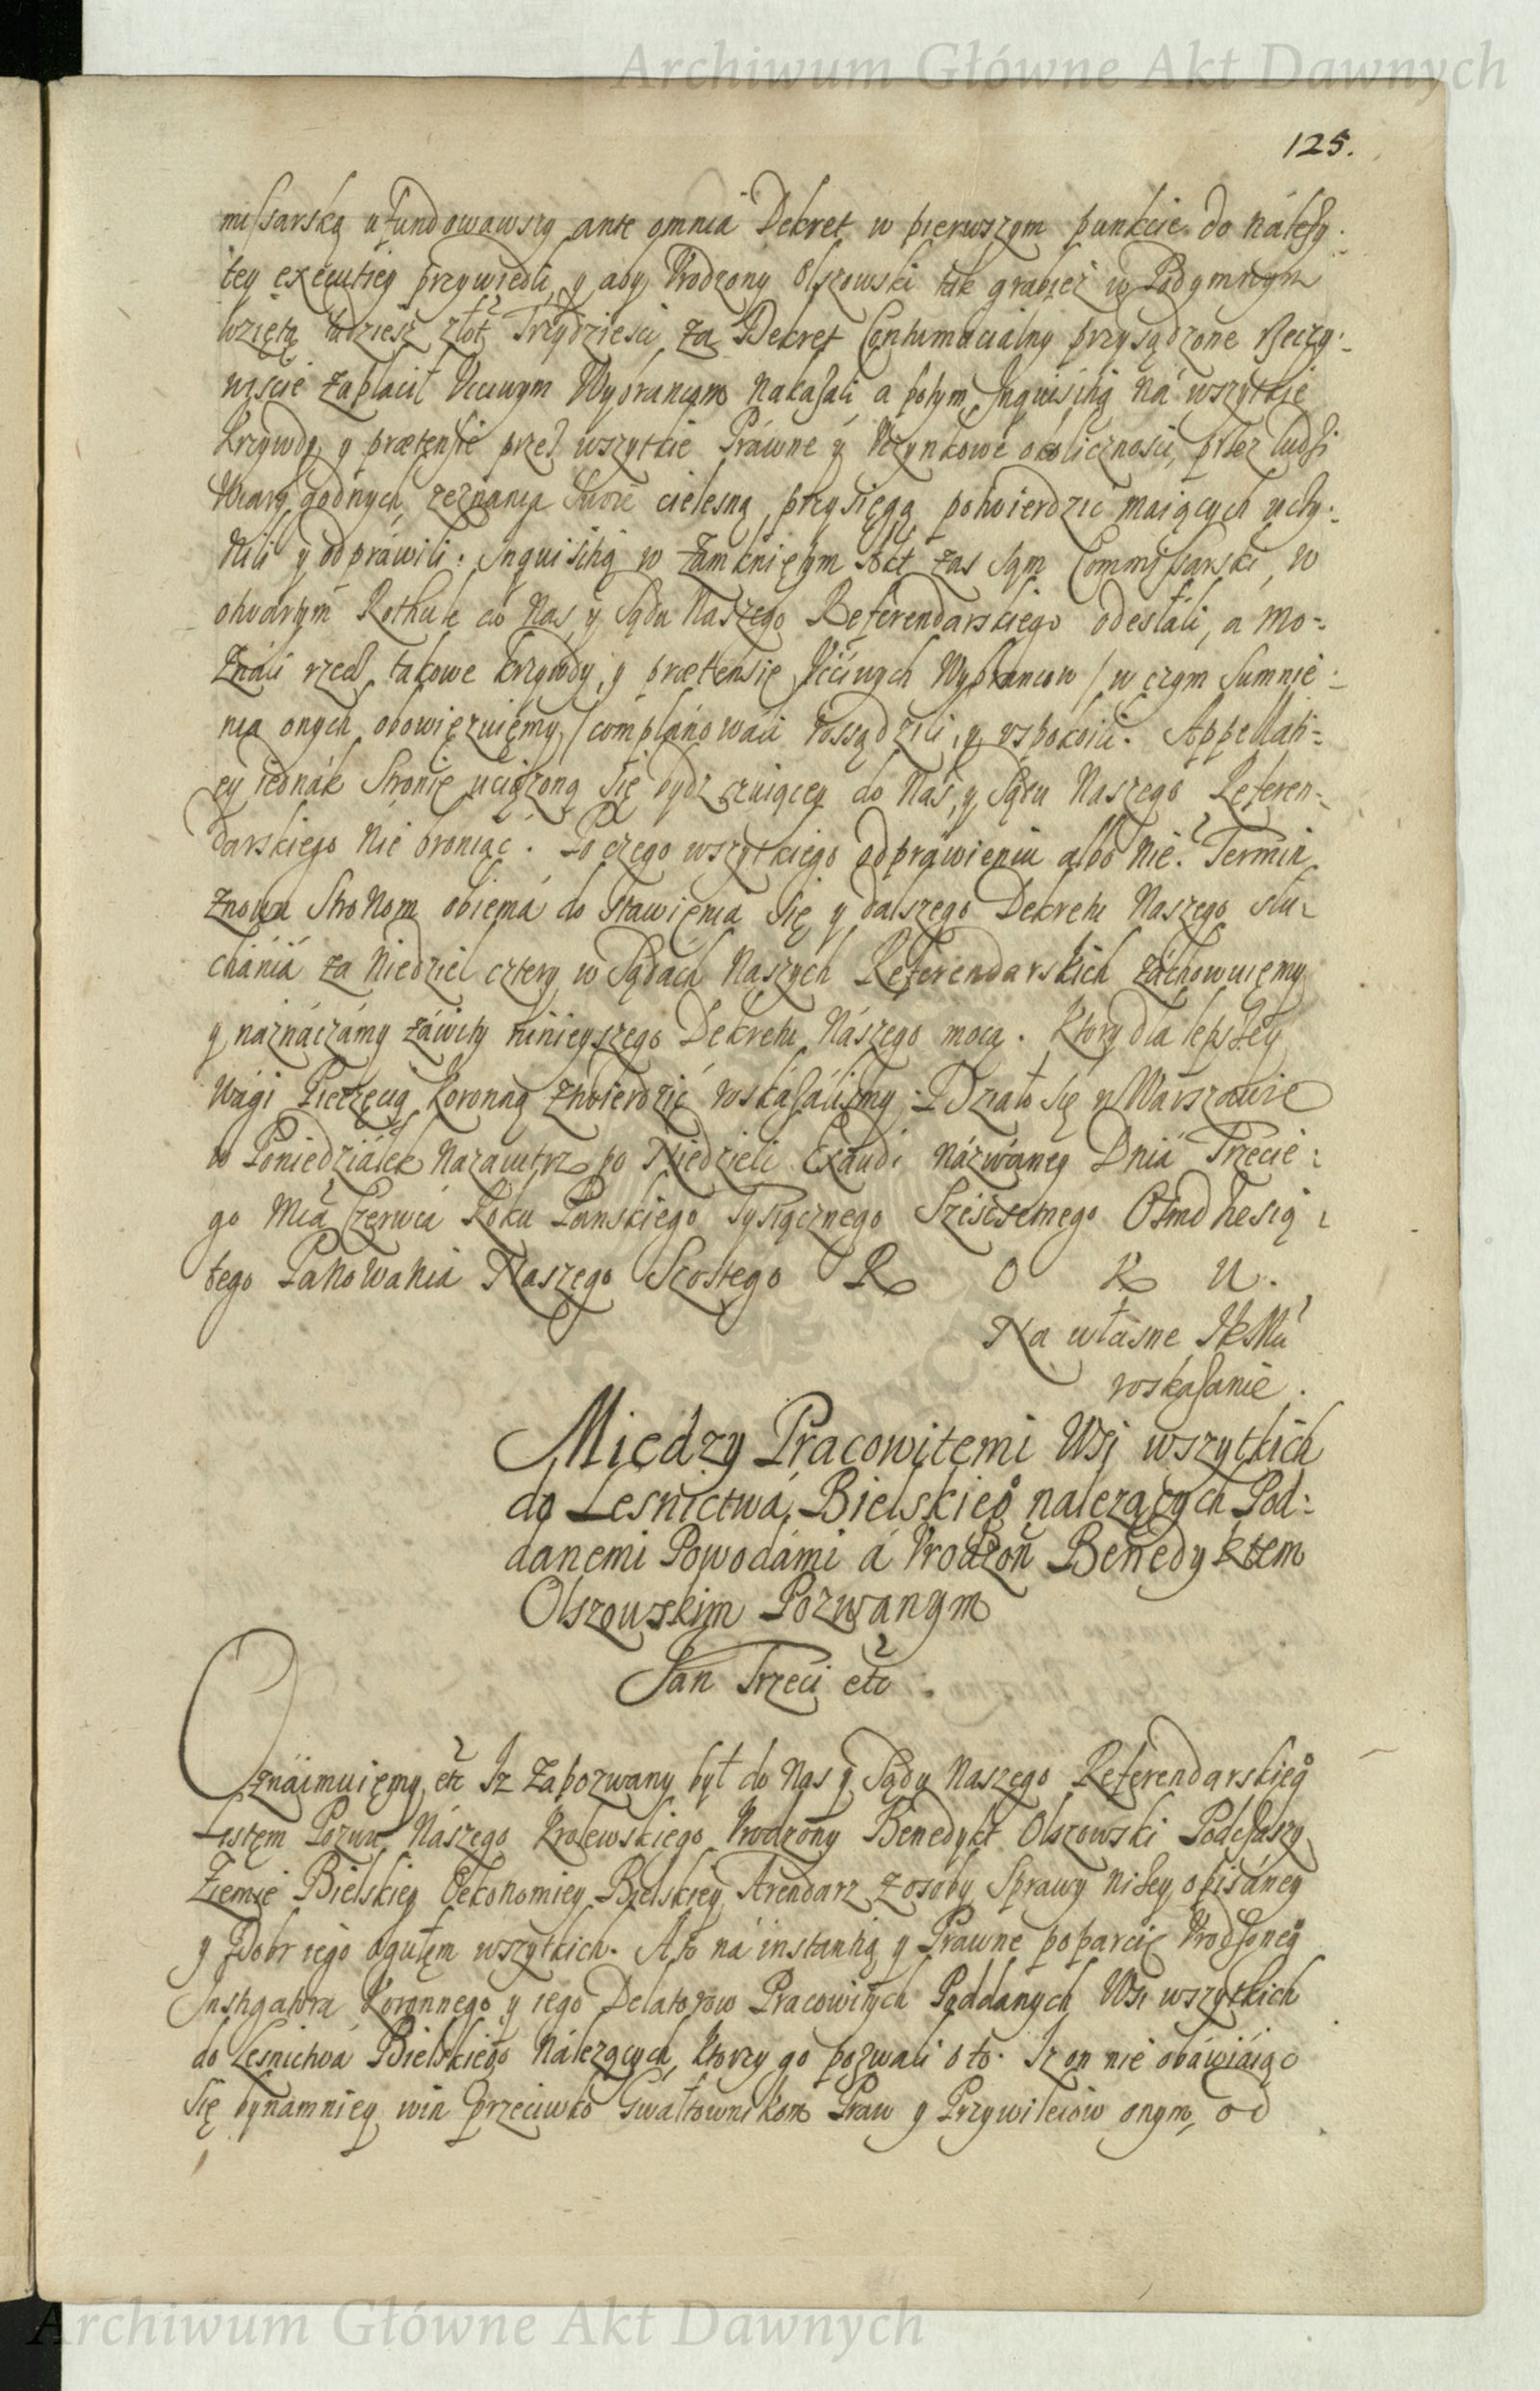 Archiwum Główne Akt Dawnych
125.
missarską ufundowawszy ante omnia Dekret w pierwszym punkcie do należy:
tey executiey przywiedli, y aby Urodzony Olszowski tak grabież w Podymnym
wziętą tudziesz złot Trzydzieści za Dekret Contumacialny przysądzone rzeczy:
wiście zapłacił Ucciwym Wybrancom nakazali a potym Inquisitią na wszytkie
krzywdy y praetensie przez wszytkie Prawne y Uczynkowe okoliczności, przez ludzi
wiary godnych zeznania swoie cielesną przysięgą potwierdzić maiących uczy:
nili y odprawili. Inquisitią w zamknięтym Akt zas sąm Commissarski, w
otwartym Rothule do Nas y Sądu Naszego Referendarskiego odesłali, a mo-
żnali rzecz takowe krzywdy, y praetensie Ucciwych Wybrancow / w czym sumnie:
nia onych obowięzuięmy / complanowali rossądzili, y uspokoili. Appellati:
ey iednak Stronie uciążoną się bydz czuiącey do Nas, y Sądu Naszego Referen-
darskiego nie broniąc. Po czego wszytkiego odprawieniu albo nie. Termin
znowu Stronom obiema do stawienia się y dalszego Dekretu Naszego słu-
chania za Niedziel cztery w Sądach Naszych Referendarskich zachowuięmy
y naznaczamy zawity ninieyszego Dekretu Naszego mocą. Ktory dla lepszey
wagi Pieczęcią Koronną ztwierdzić roskazalismy. Działo się w Warszawie
w Poniedziałek Nazaiutrz po Niedzieli Exaudi nazwaney Dnia Trzecie:
go Mca Czerwca Roku Panskiego Tysiącznego Sześcsetnego Osmdziesią:
tego Panowania Naszego Szostego R O K U.
Na własne JKMci
roskazanie.
Między Pracowitemi Wsi wszytkich
do Lesnictwa Bielskieo nalezących Pod:
danemi Powodami a Urodzon Benedyktem
Olszowskim Pozwanym
Jan Trzeci etc:
Oznaimuięmy etc Iz zapozwany był do Nas y Sądu Naszego Referendarskieo
Listem Pozwu Naszego Krolewskiego Urodzony Benedykt Olszowski Podczaszy
Ziemie Bielskiey Oekonomiey Bielskiey Arendarz z osoby Sprawy niżey opisaney
y z Dobr iego ogułem wszytkich. A to na instantią y Prawne poparcie Urodzoneo
Instigatora Koronnego y iego Delatorow Pracowitych Poddanych Wsi wszytkich
do Lesnictwa Bielskiego Nalezących, ktorzy go pozwali o to. Iz on nie obawiaiąc
się bynamniey win przeciwko Gwałtownikom Praw y Przywileiow onym, od
Archiwum Główne Akt Dawnych